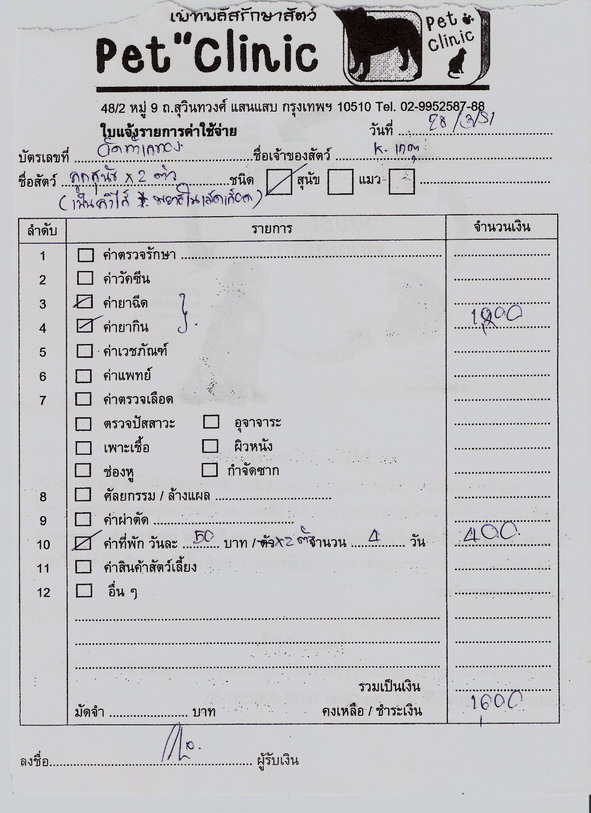 เพ็ทพลัสรักษาสัตว์
Pet "Clinic
Pet Clinic
48/2 หมู่ 9 ถ.สุวินทวงศ์ แสนแสบ กรุงเทพฯ 10510 Tel. 02-9952587-88
ใบแจ้งรายการค่าใช้จ่าย วันที่ 28/3/51
บัตรเลขที่ ชื่อเจ้าของสัตว์ K.
ชื่อสัตว์ ลูกสุนัข x 2 ตัว ชนิด สุนัข แมว
ลำดับ รายการ จำนวนเงิน
1 ค่าตรวจรักษา
2 ค่าวัคซีน
3 ค่ายาฉีด
4 ค่ายากิน 1200
5 ค่าเวชภัณฑ์
6 ค่าแพทย์
7 ค่าตรวจเลือด
ตรวจปัสสาวะ อุจาจาระ
เพาะเชื้อ ผิวหนัง
ช่องหู กำจัดซาก
8 ศัลยกรรม / ล้างแผล
9 ค่าผ่าตัด
10 ค่าที่พัก วันละ 50 บาท / ตัว x 2 ตัว จำนวน 4 วัน 400
11 ค่าสินค้าสัตว์เลี้ยง
12 อื่น ๆ
รวมเป็นเงิน
มัดจำ บาท คงเหลือ / ชำระเงิน 1600
ลงชื่อ ผู้รับเงิน